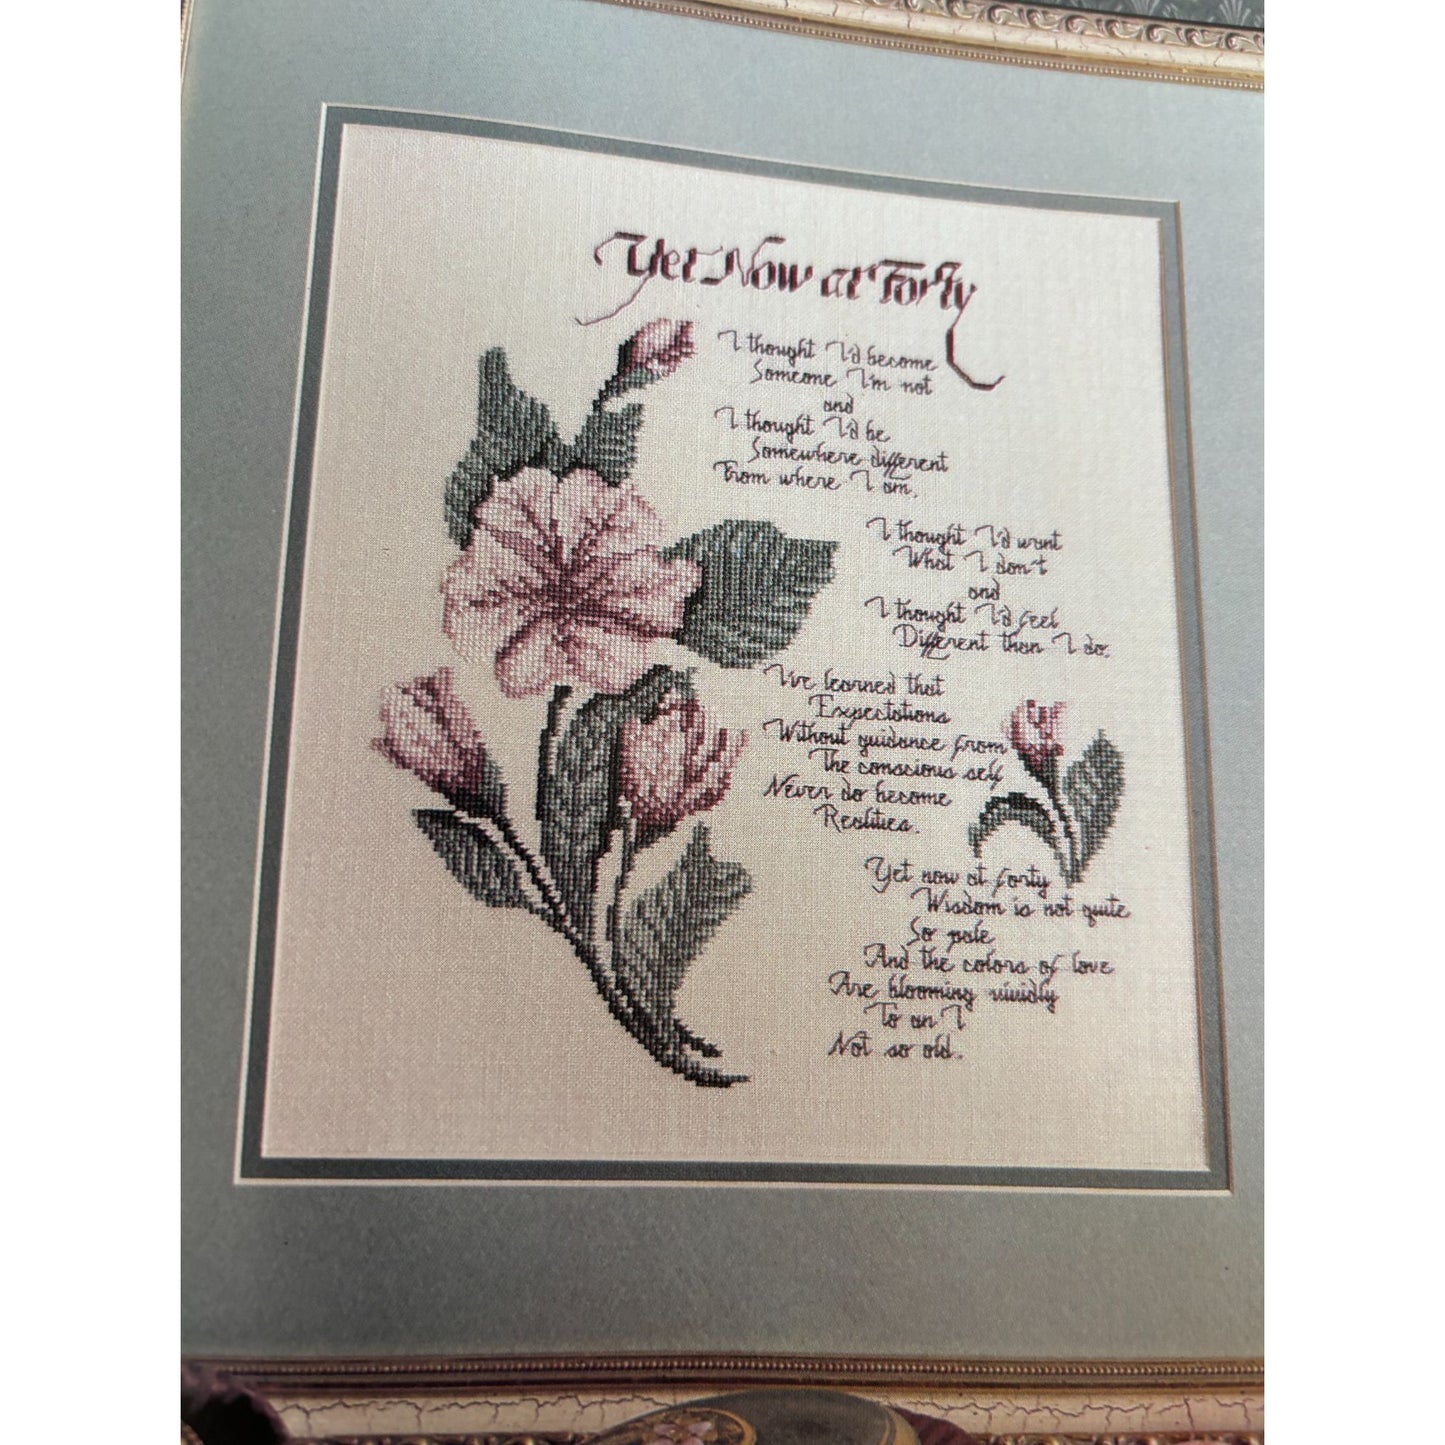 Yet Now at Forty
I thought I'd become
Someone I'm not
and
I thought I'd be
Somewhere different
From where I am.
I thought I'd want
What I don't
and
I thought I'd feel
Different than I do.
I've learned that
Expectations
Without guidance from
The conscious self
Never do become
Realities.
Yet now at forty
Wisdom is not quite
So pale
And the colors of love
Are blooming vividly
To an I
Not so old.